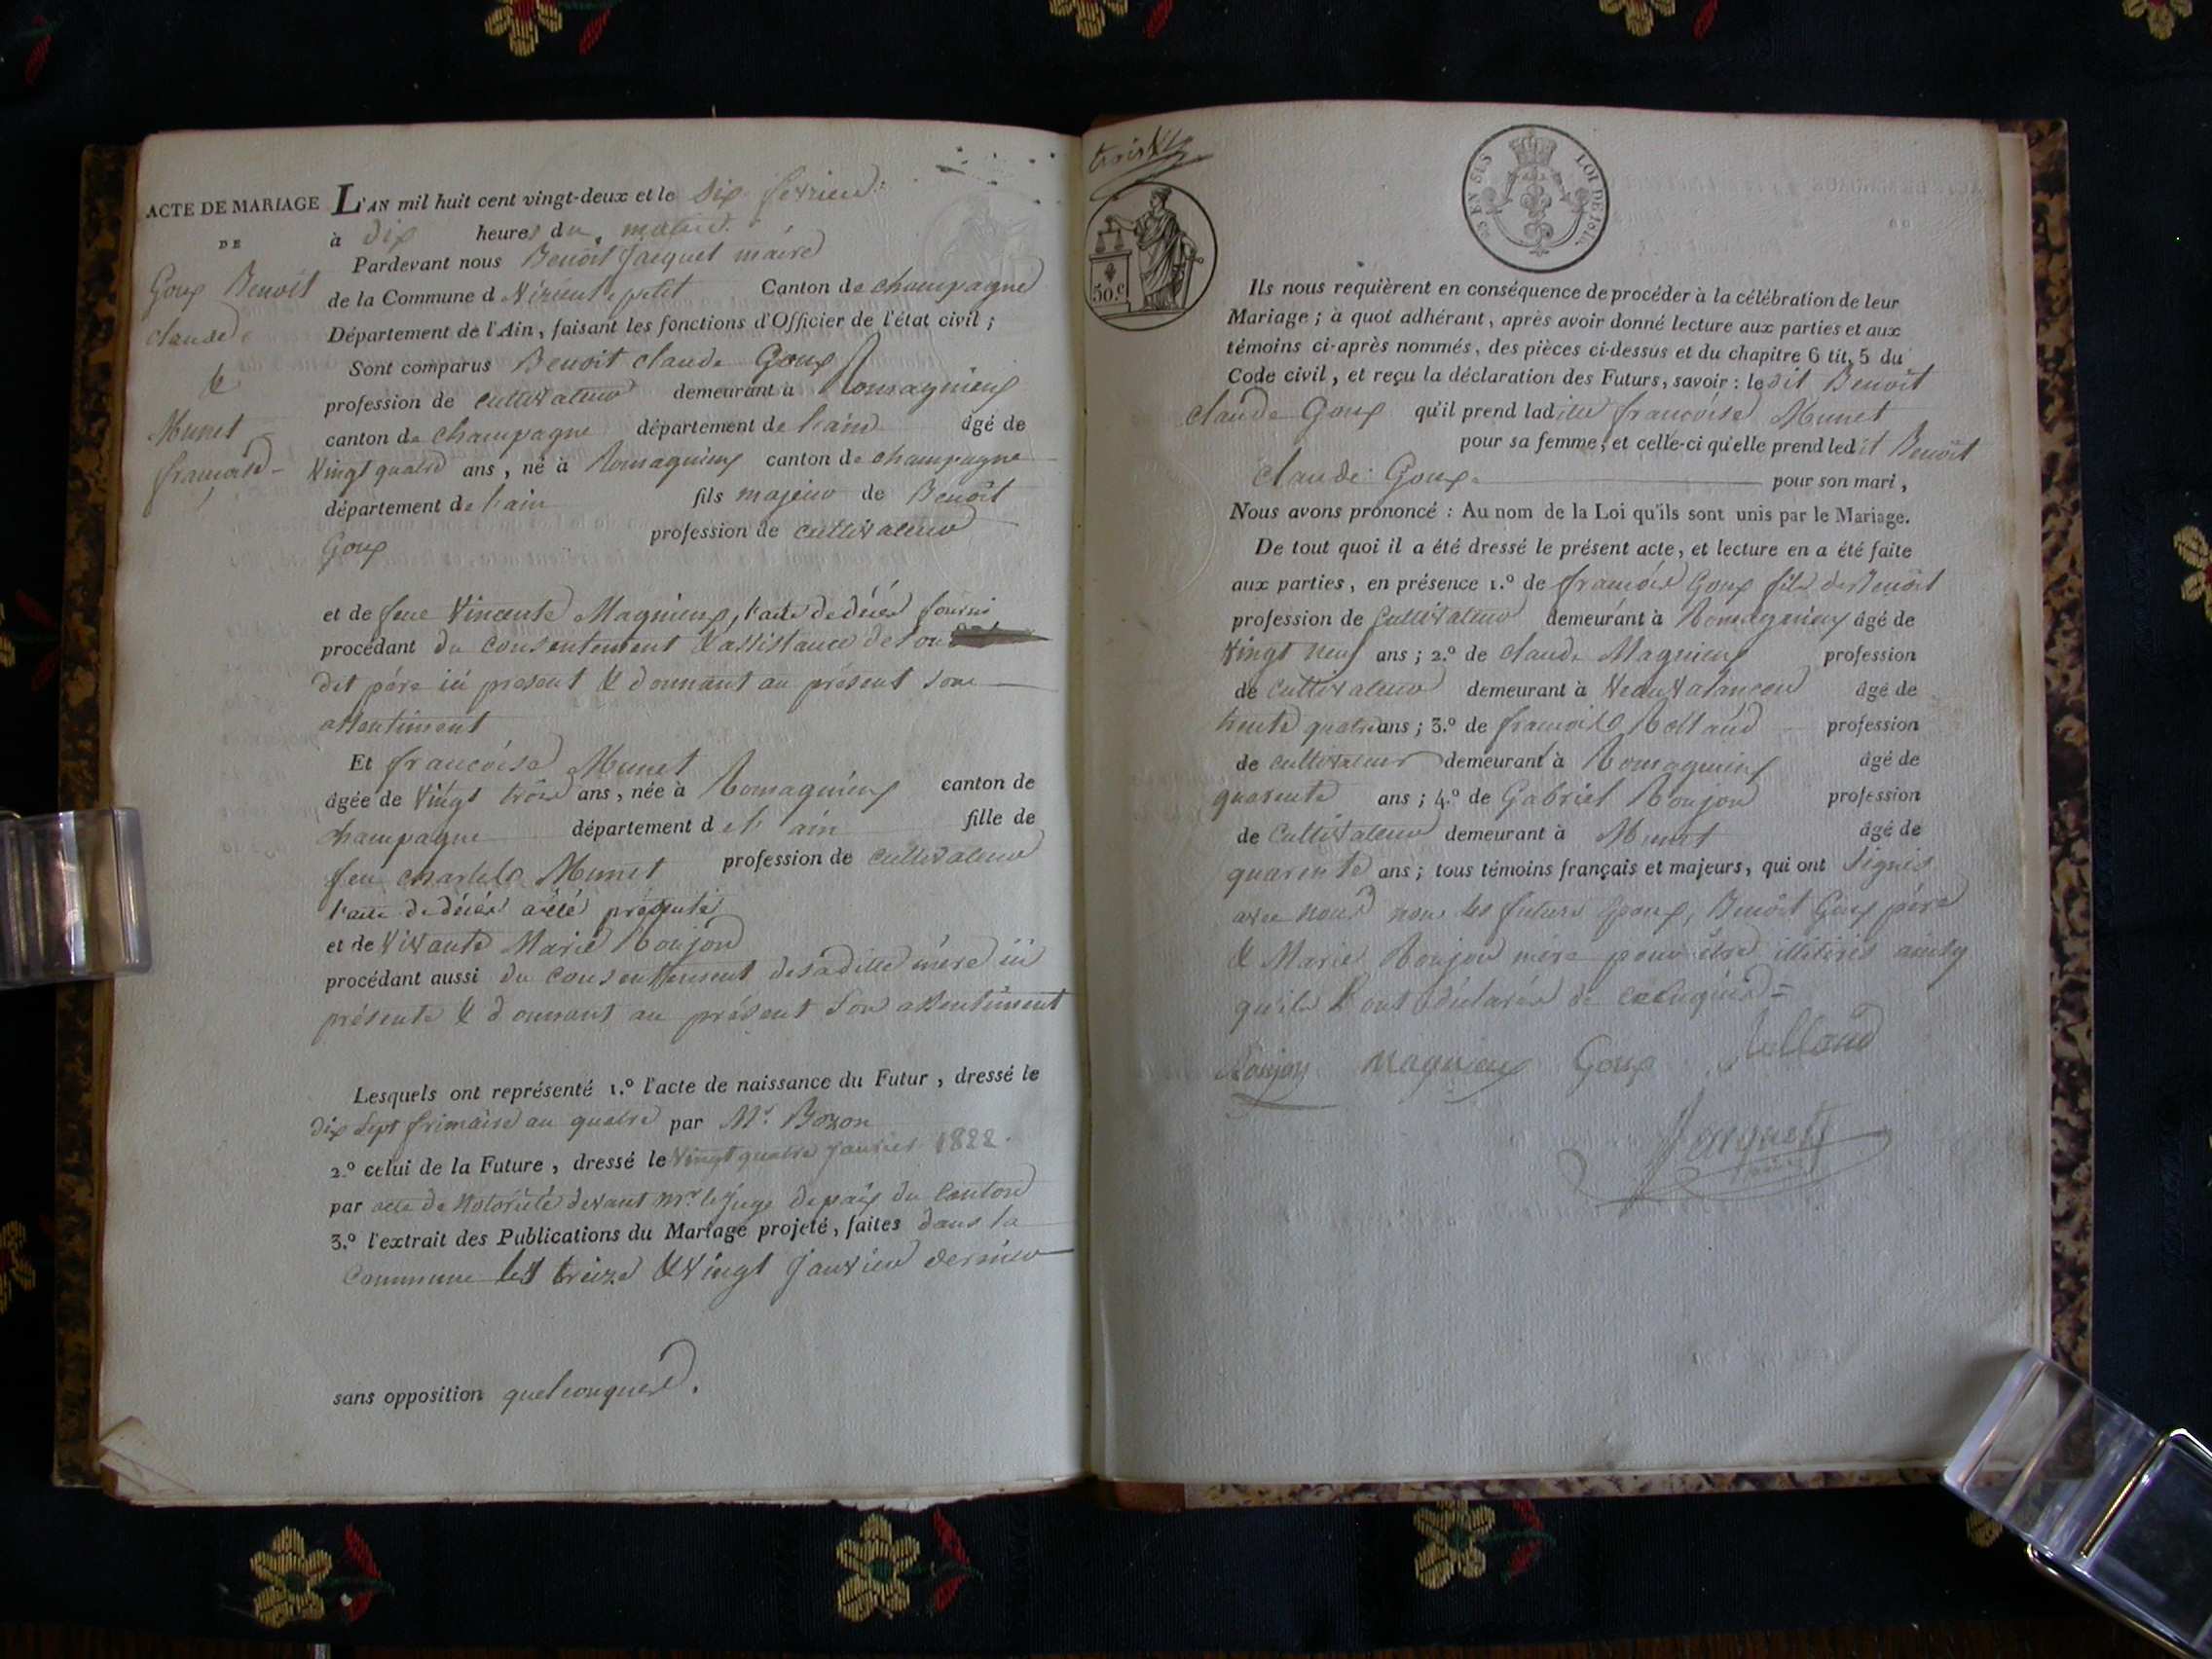 ACTE DE MARIAGE
DE
Goux Benoit
claude
&
Munet
francoise
L'AN mil huit cent vingt-deux et le six fevrier
à dix heures du matin
Pardevant nous Benoit Jacquet maire
de la Commune d Virieu le petit Canton de champagne
Département de l'Ain, faisant les fonctions d'Officier de l'état civil ;
Sont comparus Benoit claude Goux
profession de cultivateur demeurant à Romagnieux
canton de champagne département de l'ain âgé de
vingt quatre ans, né à Romagnieux canton de champagne
département de l'ain fils majeur de Benoit
Goux profession de cultivateur
et de feue Vincente Magnieux, l'acte de décés fourni
procédant du consentement & assistance de son
dit père ici present & donnant au présent son
assentiment
Et francoise Munet
âgée de vingt trois ans, née à Romagnieux canton de
champagne département de l'ain fille de
feu charle Munet profession de cultivateur
l'acte de décés a été présenté
et de vivante Marie Roujon
procédant aussi du consentement de sa dille mère ici
présente & donnant au présent son assentiment
Lesquels ont représenté 1.º l'acte de naissance du Futur, dressé le
dix sept frimaire an quatre par Mr. Bozon
2.º celui de la Future, dressé le vingt quatre janvier 1822.
par acte de Notoriété devant Mr. le juge de paix du Canton
3.º l'extrait des Publications du Mariage projeté, faites dans la
Commune les treize & vingt janvier dernier
sans opposition quelconque.
trois
50.c
LOI DE 1816.
Ils nous requièrent en conséquence de procéder à la célébration de leur
Mariage ; à quoi adhérant, après avoir donné lecture aux parties et aux
témoins ci-après nommés, des pièces ci-dessus et du chapitre 6 tit. 5 du
Code civil, et reçu la déclaration des Futurs, savoir : le dit Benoit
claude Goux qu'il prend ladille francoise Munet
pour sa femme, et celle-ci qu'elle prend ledit Benoit
claude Goux pour son mari,
Nous avons prononcé : Au nom de la Loi qu'ils sont unis par le Mariage.
De tout quoi il a été dressé le présent acte, et lecture en a été faite
aux parties, en présence 1.º de francois Goux fils de Benoit
profession de cultivateur demeurant à Romagnieux âgé de
vingt neuf ans ; 2.º de claude Magnieux profession
de cultivateur demeurant à âgé de
trente quatre ans ; 3.º de francois Rolland profession
de cultivateur demeurant à Romagnieux âgé de
quarente ans ; 4.º de Gabriel Roujon profession
de cultivateur demeurant à Munet âgé de
quarente ans ; tous témoins français et majeurs, qui ont signés
avec nous non les futurs Epoux, Benoit Goux père
& Marie Roujon mère pour être illitirés ainsy
qu'ils l'ont déclarés de ce enquis =
Roujon magnieux Goux Rolland
Jacquet
maire